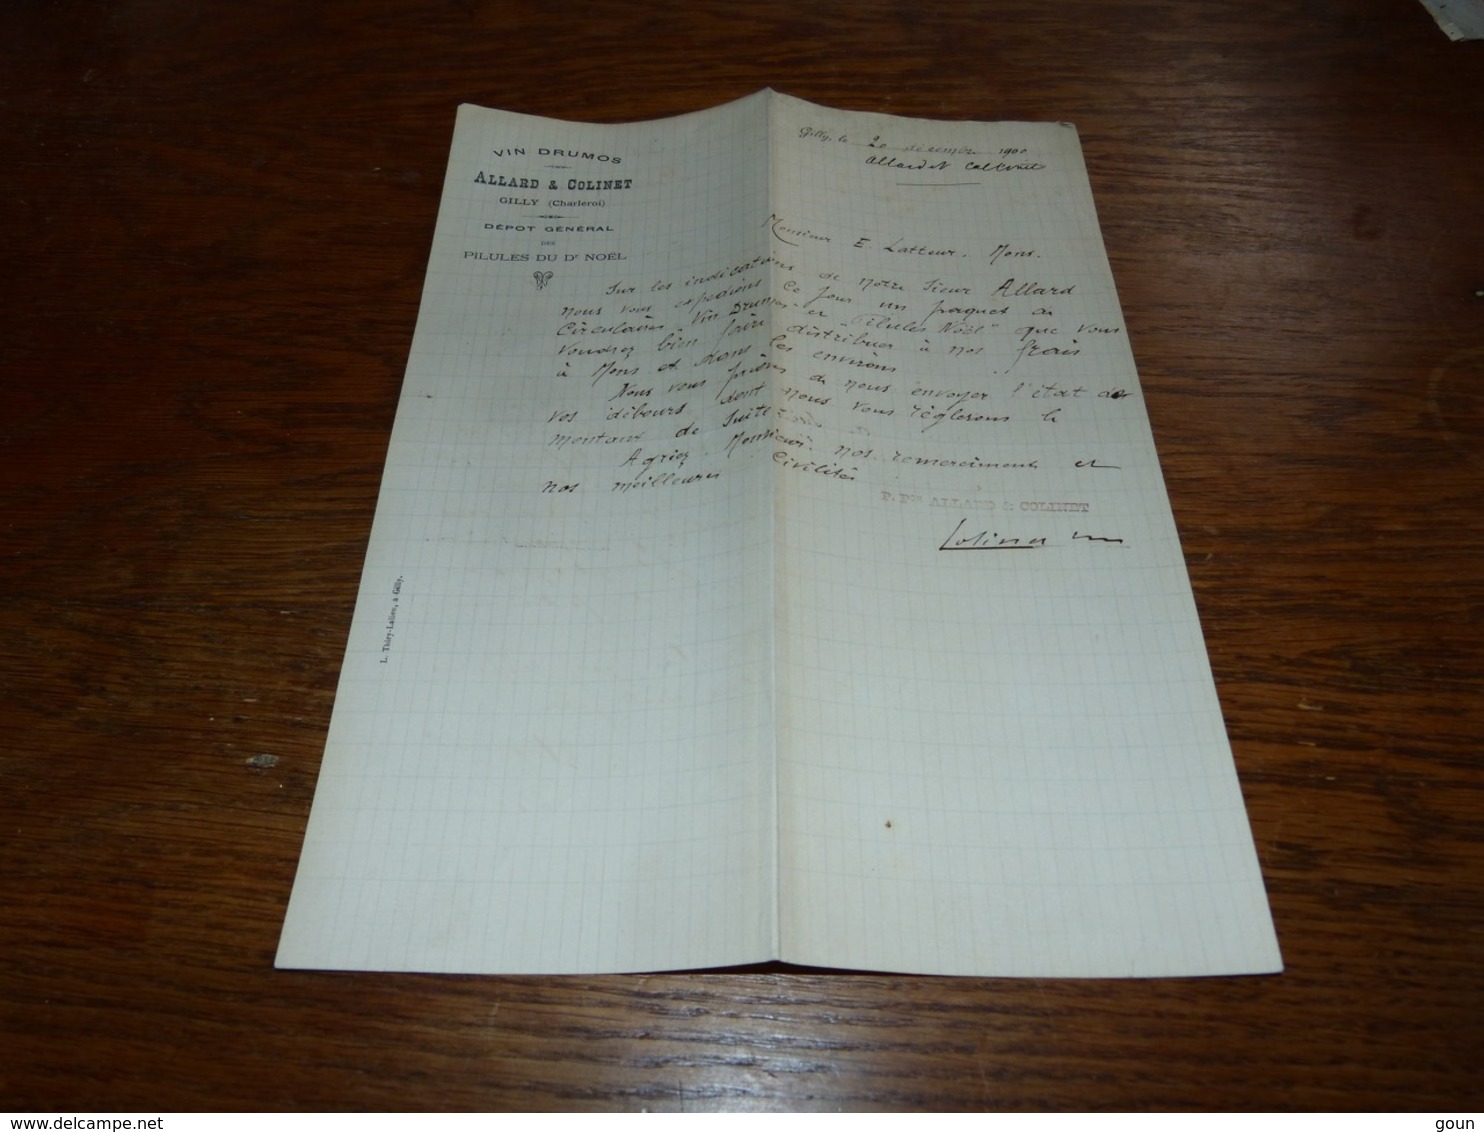 VIN DRUMOS
ALLARD & COLINET
GILLY (Charleroi)
DÉPOT GÉNÉRAL
DES
PILULES DU Dr NOËL
Gilly, le 20 décembre 1900
Allard & Colinet
Monsieur E. Latteur, Mons.
Sur les indications de notre Sieur Allard
nous vous expédions ce jour un paquet de
Circulaires "Vin Drumos" et "Pilules Noël" que vous
voudrez bien faire distribuer à nos frais
à Mons et dans les environs
Nous vous prions de nous envoyer l'état de
vos débours dont nous vous règlerons le
montant de suite
Agriez, Monsieur, nos remerciments et
nos meilleures civilités
P. Pon ALLARD & COLINET
Colinet
L. Théry-Lalieu, à Gilly.
delcampe.net
goun